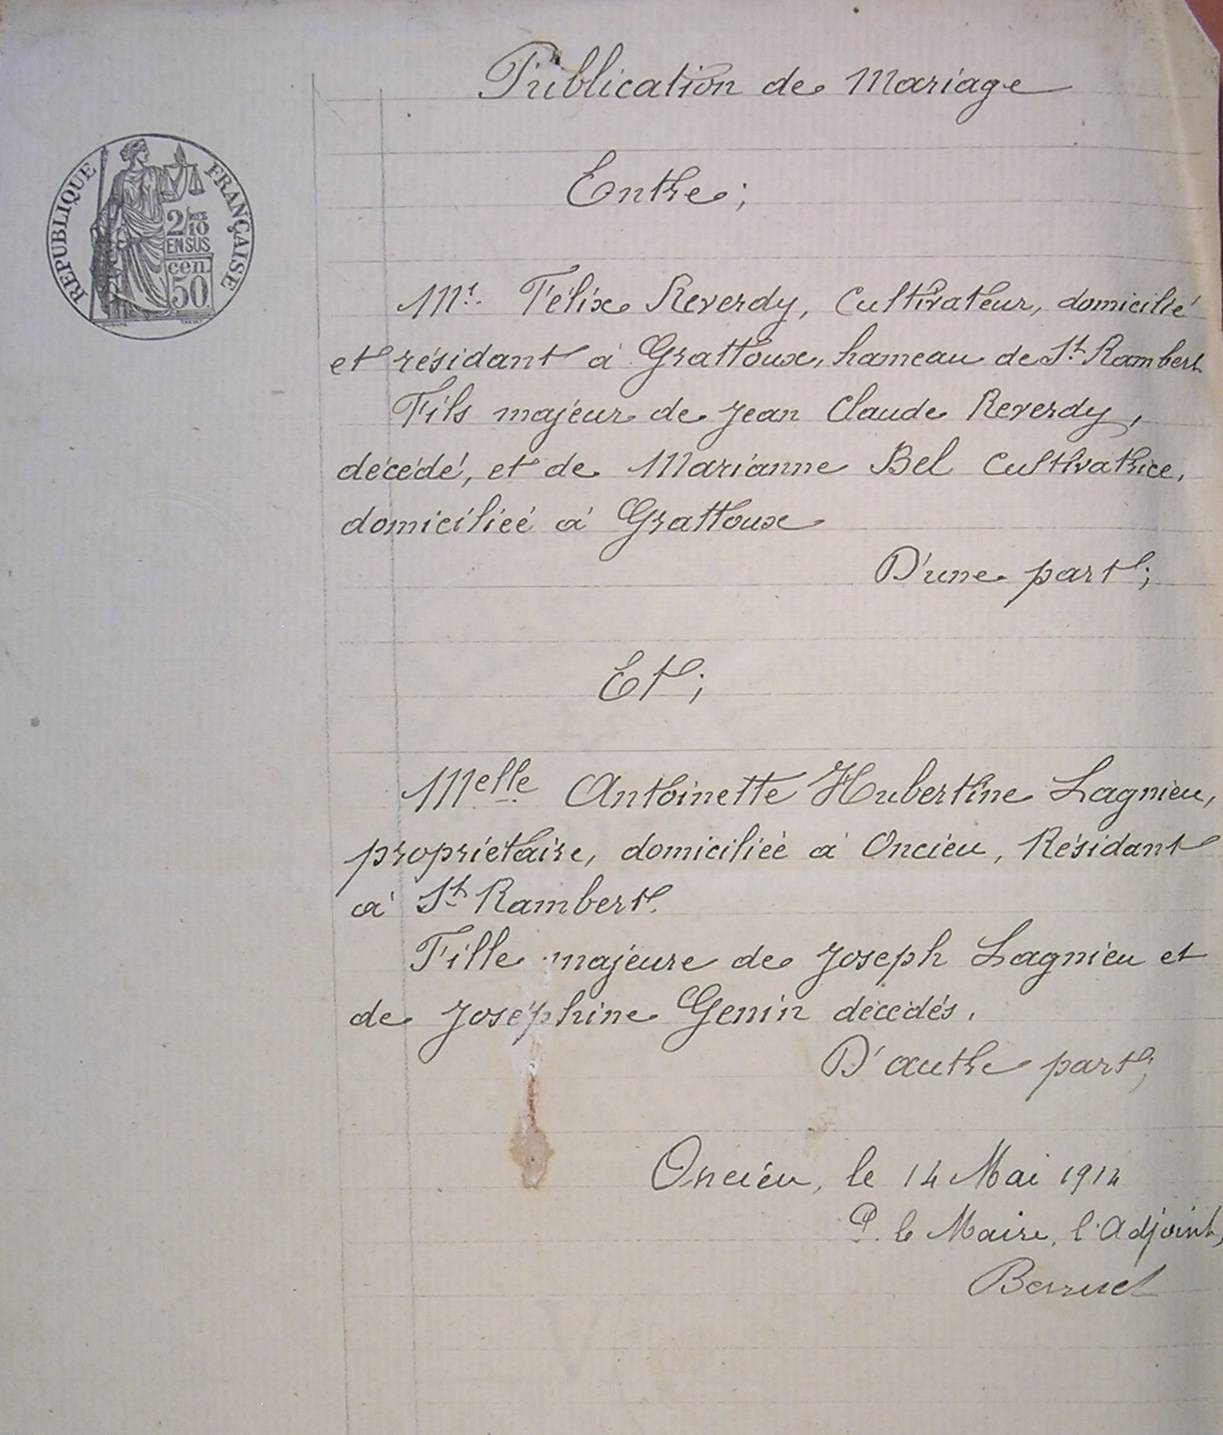 Publication de Mariage
RÉPUBLIQUE FRANÇAISE
2/10 MES
EN SUS
cen.
50
Entre;
Mr. Félix Reverdy, Cultivateur, domicilié
et résidant à Grattoux, hameau de St. Rambert
Fils majeur de Jean Claude Reverdy,
décédé, et de Marianne Bel Cultivatrice,
domiciliée à Grattoux
D'une part;
Et;
Melle Antoinette Hubertine Lagnieu,
propriétaire, domiciliée à Oncieu, Résidant
à St. Rambert.
Fille majeure de Joseph Lagnieu et
de Joséphine Genin décédés.
D'autre part;
Oncieu, le 14 Mai 1914
P. le Maire, l'Adjoint,